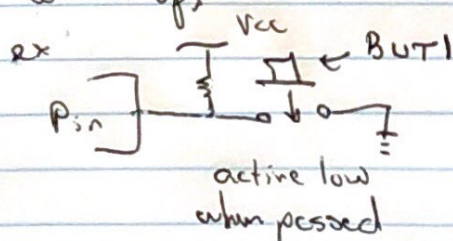 Vcc
ex
BUT1
Pin
active low
when pessed